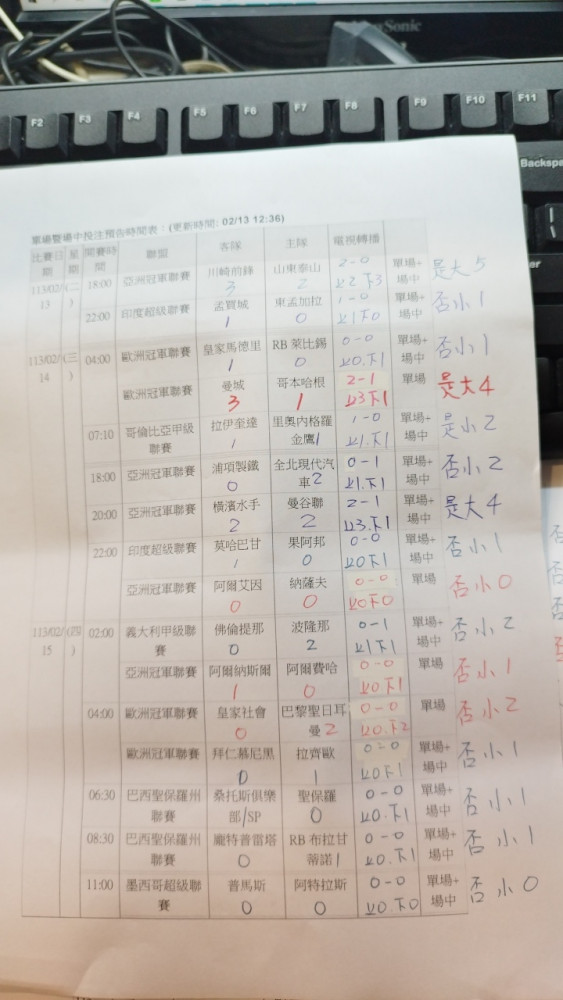 ViewSonic
F2 F3 F4 F5 F6 F7 F8 F9 F10 F11
Backspa
單場暨場中投注預告時間表：(更新時間: 02/13 12:36)
比賽日期 星期 開賽時間 聯盟 客隊 主隊 電視轉播
113/02/13 (二) 18:00 亞洲冠軍聯賽 川崎前鋒 3 山東泰山 2 2-0 上2下3 單場+場中 是大5
22:00 印度超級聯賽 孟買城 1 東孟加拉 0 1-0 上1下0 單場+場中 否小1
113/02/14 (三) 04:00 歐洲冠軍聯賽 皇家馬德里 1 RB 萊比錫 0 0-0 上0.下1 單場+場中 否小1
歐洲冠軍聯賽 曼城 3 哥本哈根 1 2-1 上3下1 單場 是大4
07:10 哥倫比亞甲級聯賽 拉伊奎達 1 里奧內格羅金鷹 1 1-0 上1.下1 單場+場中 是小2
18:00 亞洲冠軍聯賽 浦項製鐵 0 全北現代汽車 2 0-1 上1.下1 單場+場中 否小2
20:00 亞洲冠軍聯賽 橫濱水手 2 曼谷聯 2 2-1 上3.下1 單場+場中 是大4
22:00 印度超級聯賽 莫哈巴甘 1 果阿邦 0 0-0 上0下1 單場+場中 否小1
亞洲冠軍聯賽 阿爾艾因 0 納薩夫 0 0-0 上0下0 單場 否小0
113/02/15 (四) 02:00 義大利甲級聯賽 佛倫提那 0 波隆那 2 0-1 上1下1 單場+場中 否小2
亞洲冠軍聯賽 阿爾納斯爾 1 阿爾費哈 0 0-0 上0下1 單場 否小1
04:00 歐洲冠軍聯賽 皇家社會 0 巴黎聖日耳曼 2 0-0 上0.下2 單場 否小2
歐洲冠軍聯賽 拜仁慕尼黑 0 拉齊歐 1 0-0 上0下1 單場+場中 否小1
06:30 巴西聖保羅州聯賽 桑托斯俱樂部/SP 1 聖保羅 0 0-0 上0.下1 單場+場中 否小1
08:30 巴西聖保羅州聯賽 龐特普雷塔 0 RB 布拉甘蒂諾 1 0-0 上0.下1 單場+場中 否小1
11:00 墨西哥超級聯賽 普馬斯 0 阿特拉斯 0 0-0 上0.下0 單場+場中 否小0